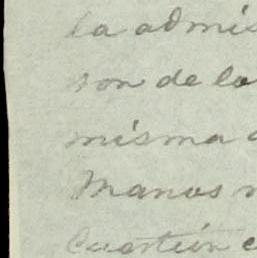 la admis
son de la
misma
Manos
Cuestión